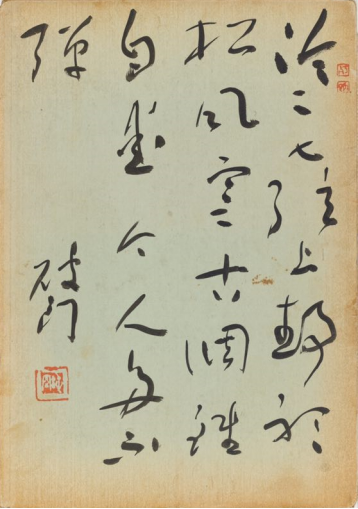 泠〻七弦上静聽
松風寒古調雖
自愛今人多不
彈
破門